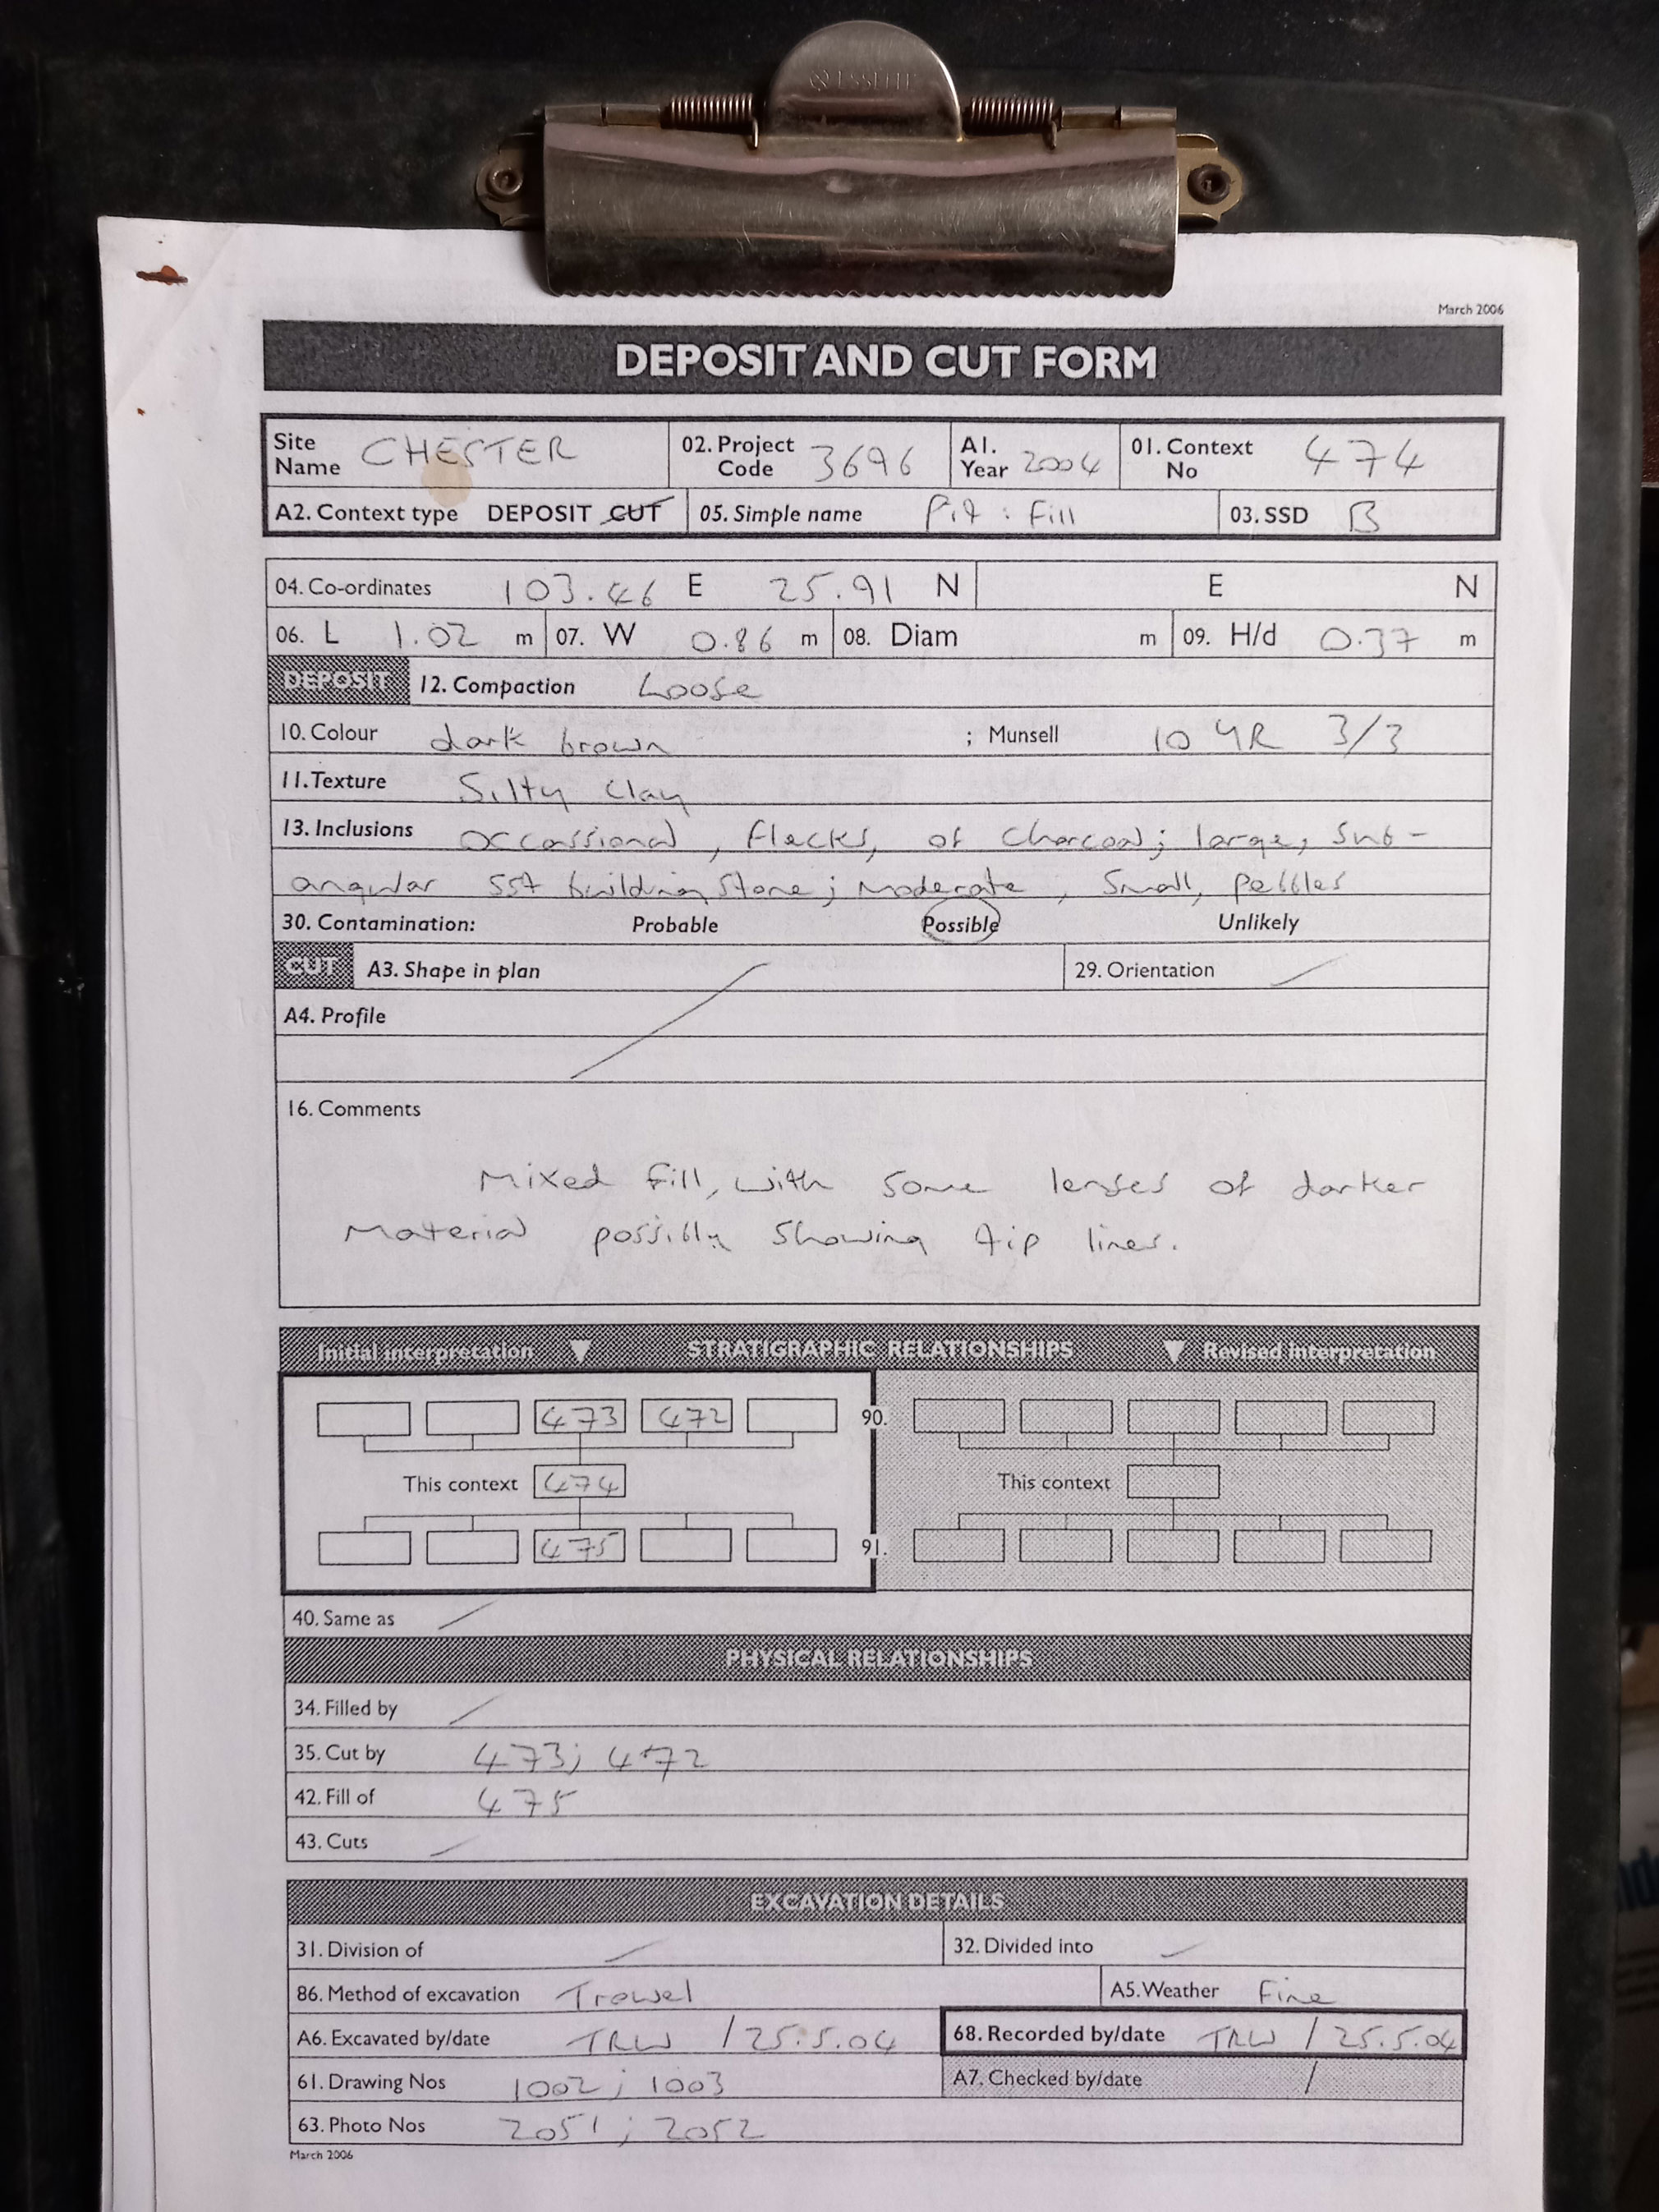 ESSELTE
March 2006
DEPOSIT AND CUT FORM
Site Name CHESTER 02. Project Code 3696 A1. Year 2004 01. Context No 474
A2. Context type DEPOSIT CUT 05. Simple name Pit : Fill 03. SSD B
04. Co-ordinates 103.46 E 25.91 N E N
06. L 1.02 m 07. W 0.86 m 08. Diam m 09. H/d 0.37 m
DEPOSIT 12. Compaction Loose
10. Colour dark brown ; Munsell 10 YR 3/3
11. Texture Silty Clay
13. Inclusions Occassional, flecks, of charcoal; large, sub-
angular sst building stone; moderate, small, pebbles
30. Contamination: Probable Possible Unlikely
CUT A3. Shape in plan / 29. Orientation /
A4. Profile
16. Comments
Mixed fill, with some lenses of darker
material possibly showing tip lines.
Initial interpretation ▼ STRATIGRAPHIC RELATIONSHIPS ▼ Revised interpretation
473 472 90.
This context 474 This context
475 91.
40. Same as /
PHYSICAL RELATIONSHIPS
34. Filled by /
35. Cut by 473; 472
42. Fill of 475
43. Cuts /
EXCAVATION DETAILS
31. Division of / 32. Divided into /
86. Method of excavation Trowel A5. Weather Fine
A6. Excavated by/date TRW / 25.5.04 68. Recorded by/date TRW / 25.5.04
61. Drawing Nos 1002 ; 1003 A7. Checked by/date /
63. Photo Nos 2051 ; 2052
March 2006